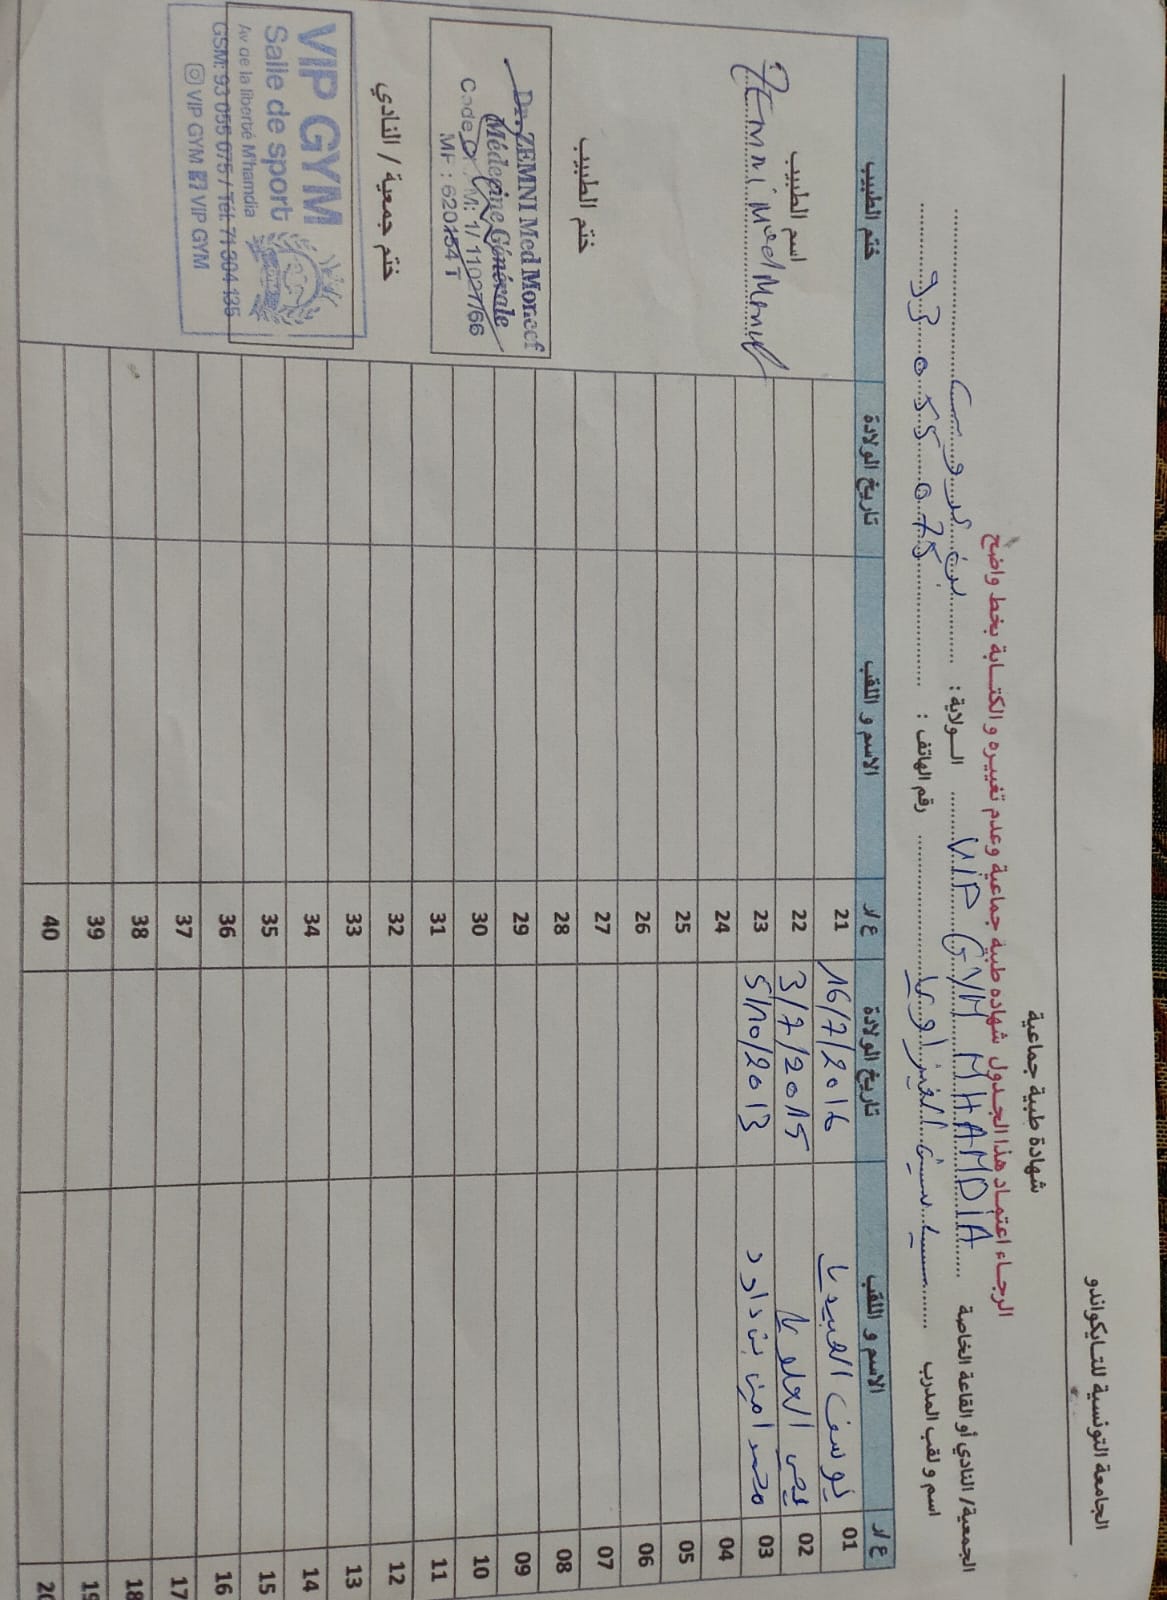 الجامعة التونسية للتايكواندو
شهادة طبية جماعية
الرجاء اعتماد هذا الجدول شهادة طبية جماعية وعدم تغييره و الكتابة بخط واضح
الجمعية/ النادي أو القاعة الخاصة VIP GYM MHAMDIA الولاية : بن عروس
اسم و لقب المدرب رقم الهاتف : 93 055 075
ع/ر الاسم و اللقب تاريخ الولادة ع/ر الاسم و اللقب تاريخ الولادة ختم الطبيب
01 يوسف العبيدي 16/7/2016 21
02 يحيى العلوي 3/7/2015 22
03 محمد امين بن داود 5/10/2013 23
04 24
05 25
06 26
07 27
08 28
09 29
10 30
11 31
12 32
13 33
14 34
15 35
16 36
17 37
18 38
19 39
20 40
اسم الطبيب
Zemni Med Moncef
ختم الطبيب
Dr. ZEMNI Med Moncef
Médecine Générale
M: 1/ 11027/66
MF : 620154 T
ختم جمعية / النادي
VIP GYM
Salle de sport
Av de la liberté M'hamdia
GSM: 93 055 075 / Tél: 71 304 135
VIP GYM VIP GYM